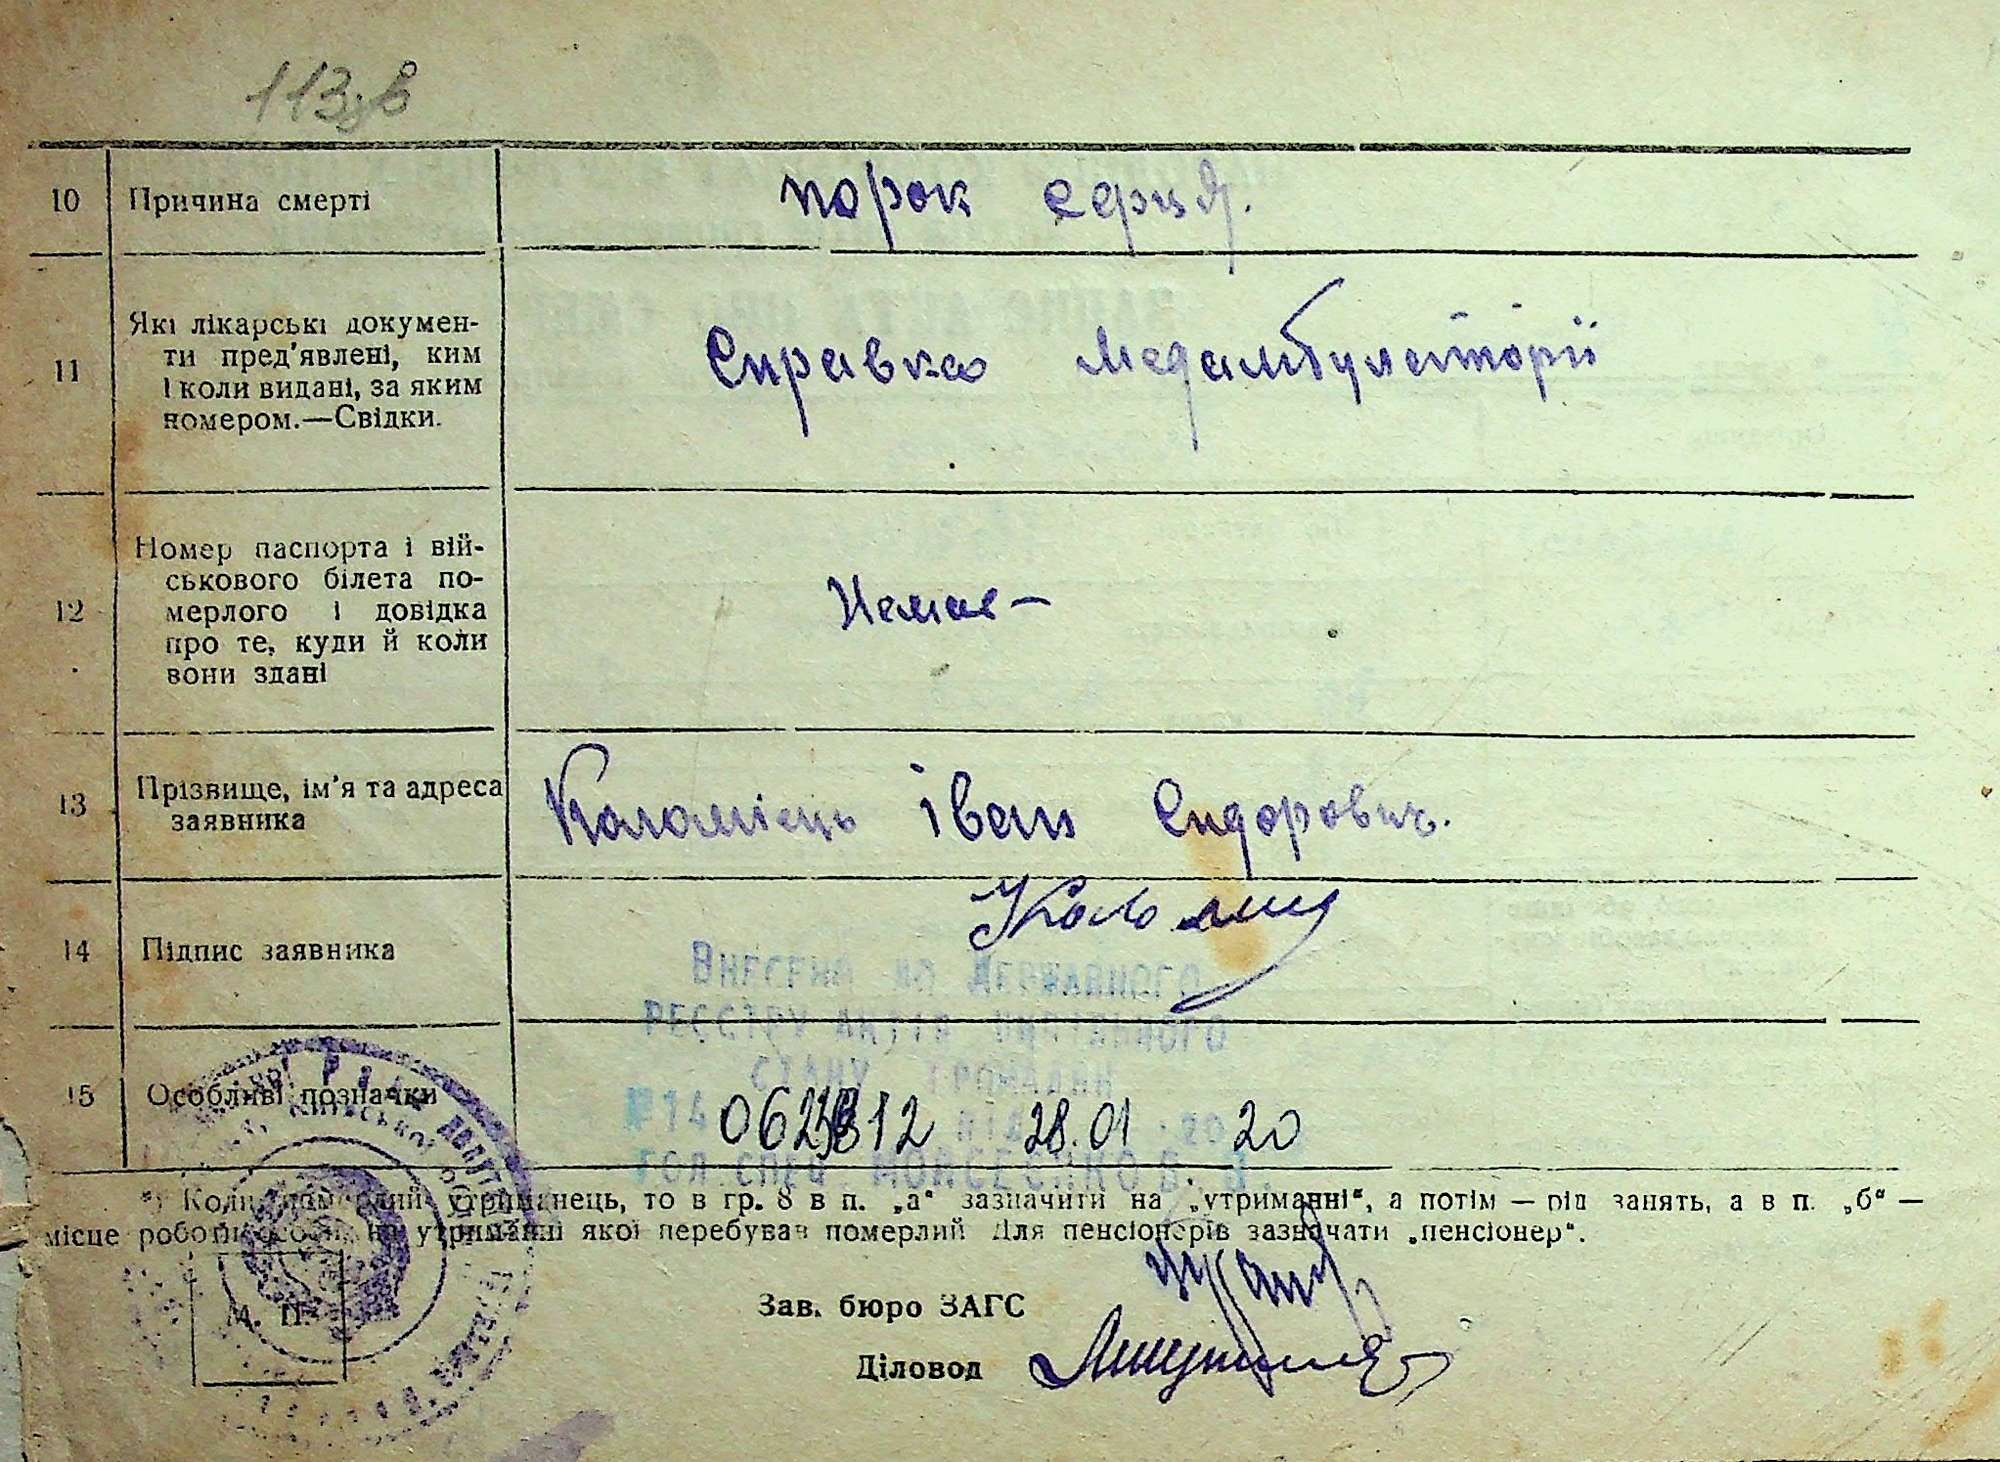 113зв
10 Причина смерті порок серця.
11 Які лікарські докумен-
ти пред'явлені, ким
і коли видані, за яким
номером.—Свідки.
Справка Медамбулаторії
12 Номер паспорта і вій-
ськового білета по-
мерлого і довідка
про те, куди й коли
вони здані
Немає —
13 Прізвище, ім'я та адреса
заявника
Коломієць Іван Сидорович.
14 Підпис заявника
Внесено до Державного
реєстру актів цивільного
стану громадян
15 Особливі позначки
№14 12 від 28.01 2020
Гол. спец. Мойсеєнко В.
*) Коли померлий утриманець, то в гр. 8 в п. „а“ зазначити на „утриманні“, а потім — рід занять, а в п. „б“ —
місце роботи особи, на утриманні якої перебував померлий. Для пенсіонерів зазначати „пенсіонер“.
М. П.
Зав. бюро ЗАГС
Діловод